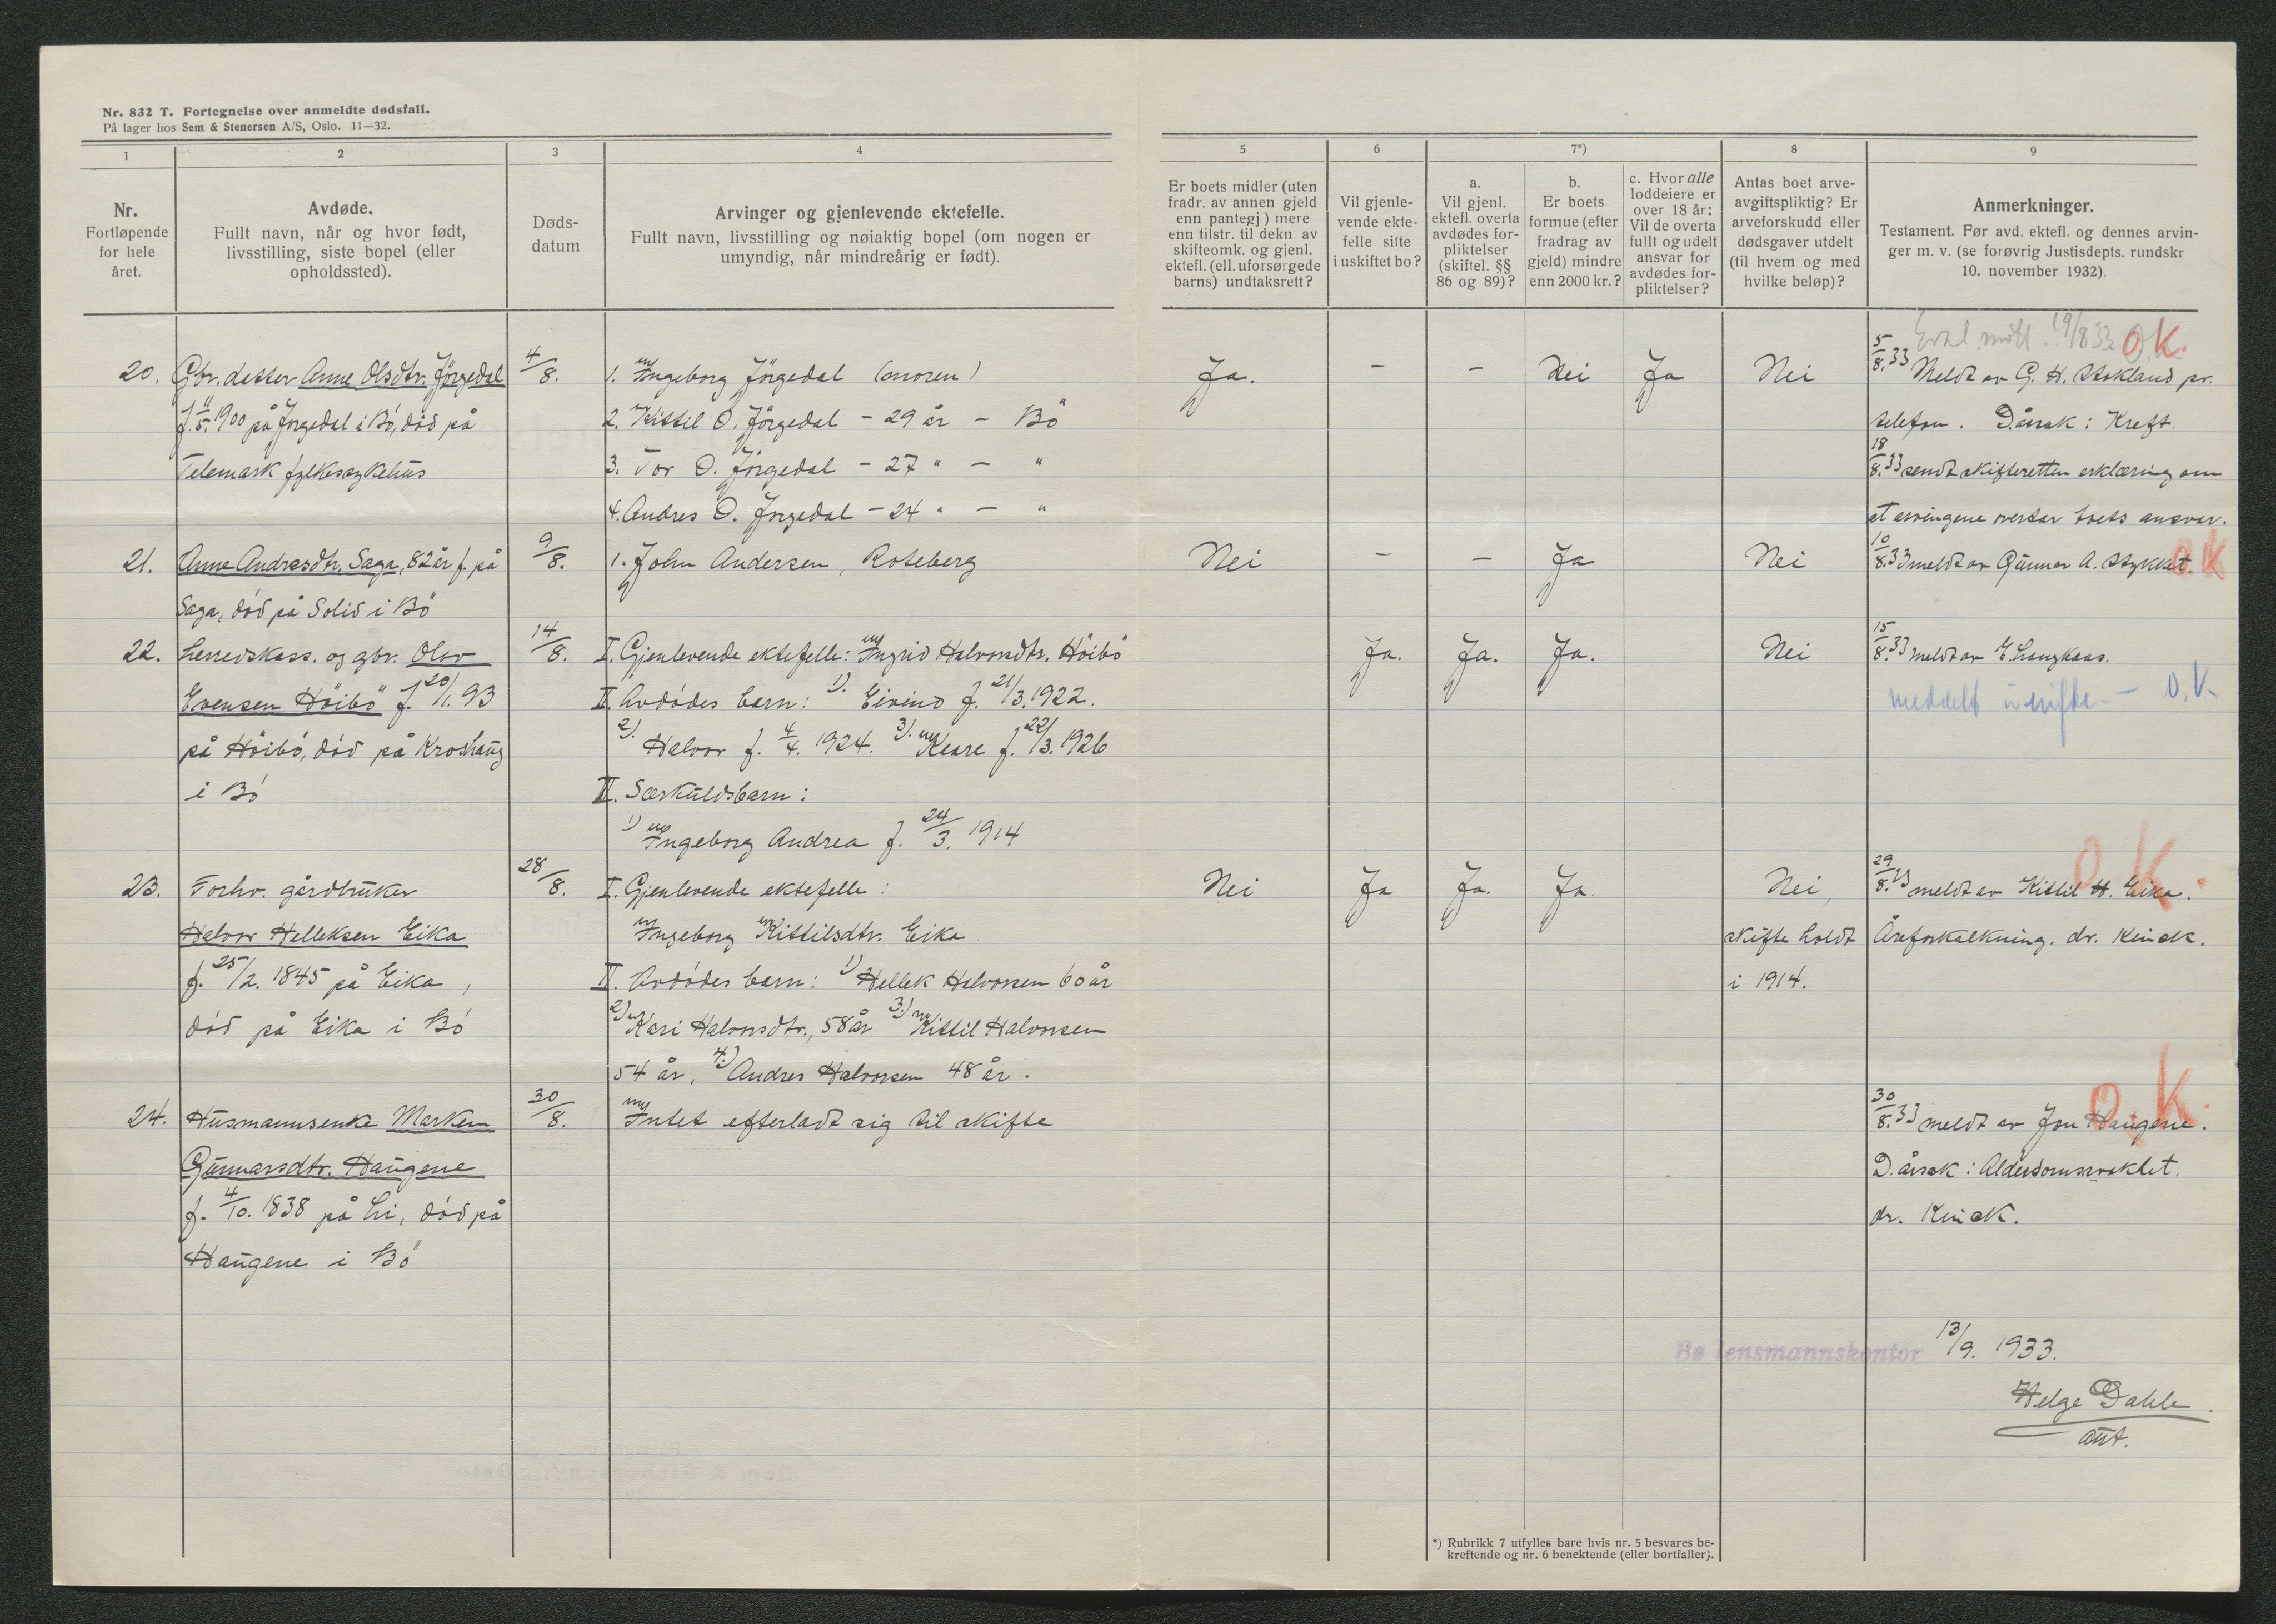 Nr. 832 T. Fortegnelse over anmeldte dødsfall.
På lager hos Sem & Stenersen A/S, Oslo. 11—32.
1
2
3
4
5
6
7*)
8
9
Nr.
Fortløpende
for hele
året.
Avdøde.
Fullt navn, når og hvor født,
livsstilling, siste bopel (eller
opholdssted).
Døds-
datum
Arvinger og gjenlevende ektefelle.
Fullt navn, livsstilling og nøiaktig bopel (om nogen er
umyndig, når mindreårig er født).
Er boets midler (uten
fradr. av annen gjeld
enn pantegj ) mere
enn tilstr. til dekn. av
skifteomk. og gjenl.
ektefl. (ell. uforsørgede
barns) undtaksrett?
Vil gjenle-
vende ekte-
felle sitte
i uskiftet bo?
a.
Vil gjenl.
ektefl. overta
avdødes for-
pliktelser
(skiftel. §§
86 og 89)?
b.
Er boets
formue (efter
fradrag av
gjeld) mindre
enn 2000 kr.?
c. Hvor alle
loddeiere er
over 18 år:
Vil de overta
fullt og udelt
ansvar for
avdødes for-
pliktelser?
Antas boet arve-
avgiftspliktig? Er
arveforskudd eller
dødsgaver utdelt
(til hvem og med
hvilke beløp)?
Anmerkninger.
Testament. Før avd. ektefl. og dennes arvin-
ger m. v. (se forøvrig Justisdepts. rundskr
10. november 1932).
20.
Gbr. datter Anne Olsdtr. Jörgedal
f. 11/5. 1900 på Jörgedal i Bö, död på
Telemark fylkessykehus
4/8.
1. Ingeborg Jörgedal (moren)
2. Kittil O. Jörgedal - 29 år - Bö
3. Tor O. Jörgedal - 27 " - "
4. Andres O. Jörgedal - 24 " - "
Ja.
-
-
Nei
Ja
Nei
19/8 33 O.K.
5/8.33 Meldt av G. H. Stokland pr.
telefon. D.årsak: Kreft.
18/8.33 sendt skifteretten erklæring om
at arvingene overtar boets ansvar.
21.
Anne Andresdtr. Saga, 82 år f. på
Saga, död på Solid i Bö
9/8.
1. John Andersen, Roteberg
Nei
-
-
Ja
Nei
10/8.33 meldt av Gunnar A. Stykket.
O.K
22.
Herredskass. og gbr. Olav
Evensen Höibö f. 20/1. 93
på Höibö, död på Kroshaug
i Bö
14/8.
I. Gjenlevende ektefelle: Ingrid Halvorsdtr. Höibö
II. Avdödes barn: 1). Eivind f. 21/3. 1922.
2). Halvor f. 4/4. 1924. 3). Keare f. 22/3. 1926
II. Særkuldsbarn:
1) Ingeborg Andrea f. 24/3. 1914
Ja.
Ja.
Ja.
Nei
15/8.33 meldt av E. Langkaas.
meddelt - O.K.
23.
Forhv. gårdbruker
Halvor Helleksen Eika
f. 25/2. 1845 på Eika,
död på Eika i Bö
28/8.
I. Gjenlevende ektefelle:
Ingeborg Kittilsdtr. Eika
II. Avdödes barn: 1) Hellek Halvorsen 60 år
2) Kari Halvorsdtr., 58 år 3.) Kittil Halvorsen
54 år, 4.) Andres Halvorsen 48 år.
Nei
Ja
Ja.
Ja.
Nei,
skifte holdt
i 1914.
O.K.
29/8.33 meldt av Kittil H. Eika.
Åreforkalkning. dr. Kinck.
24.
Husmannsenke Marken
Gunnarsdtr. Haugene
f. 4/10. 1838 på Li, död på
Haugene i Bö
30/8.
Intet efterladt sig til skifte
O.K.
30/8.33 meldt av Jon Haugene.
D.årsak: Alderdomssvakhet.
dr. Kinck.
Bø lensmannskontor 13/9. 1933.
Helge Dahle.
aut.
*) Rubrikk 7 utfylles bare hvis nr. 5 besvares be-
kreftende og nr. 6 benektende (eller bortfaller).